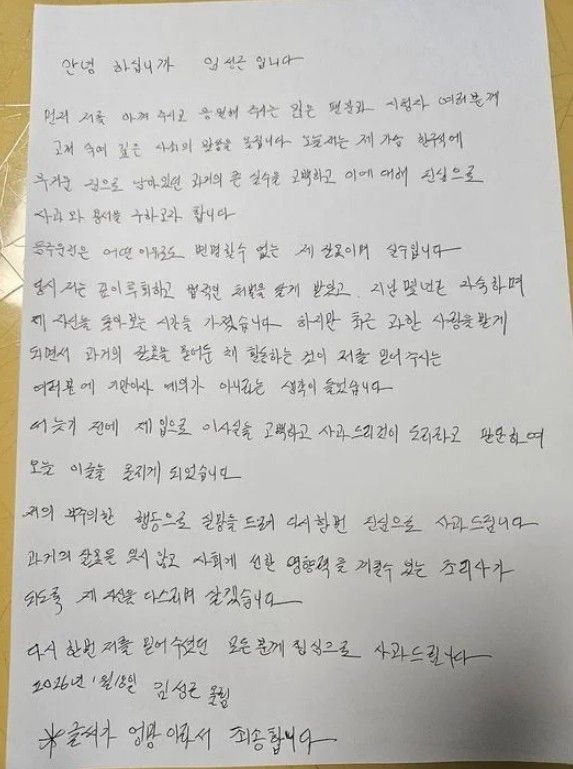 안녕 하십니까 임성근 입니다
먼저 저를 아껴 주시고 응원해 주시는 많은 팬분과 시청자 여러분께
고개 숙여 깊은 사죄의 말씀을 올립니다 오늘 저는 제 가슴 한구석에
무거운 짐으로 남아있던 과거의 큰 실수를 고백하고 이에 대해 진심으로
사과와 용서를 구하고자 합니다
음주운전은 어떤 이유로도 변명할수 없는 제 잘못이며 실수입니다
당시 저는 깊이 후회하고 법적인 처벌을 달게 받았고, 지난 몇년은 자숙하며
제 자신을 돌아보는 시간을 가졌습니다 하지만 최근 과한 사랑을 받게
되면서 과거의 잘못을 묻어둔 채 활동하는 것이 저를 믿어 주시는
여러분에 기만이자 예의가 아니라는 생각이 들었습니다
더 늦기 전에 제 입으로 이사실을 고백하고 사과 드리것이 도리라고 판단하여
오늘 이글을 올리게 되었습니다
저의 부주의한 행동으로 실망을 드려 다시한번 진심으로 사과드립니다
과거의 잘못을 잊지 않고 사회에 선한 영향력을 끼칠수 있는 조리사가
되도록 제 자신을 다스리며 살겠습니다
다시 한번 저를 믿어주셨던 모든분께 진심으로 사과드립니다
2026년 1월 18일 임성근 올림
※글씨가 엉망이라서 죄송합니다